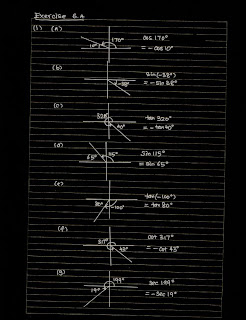 Exercise 6.A
(1) (A)
170°
10°
cos 170°
= -cos 10°
(b)
-38°
sin(-38°)
= -sin 38°
(c)
320°
40°
tan 320°
= -tan 40°
(d)
65°
sin 115°
= sin 65°
(e)
80°
-100°
tan(-100°)
= tan 80°
(f)
317°
43°
cot 317°
= -cot 43°
(g)
199°
19°
sec 199°
= -sec 19°